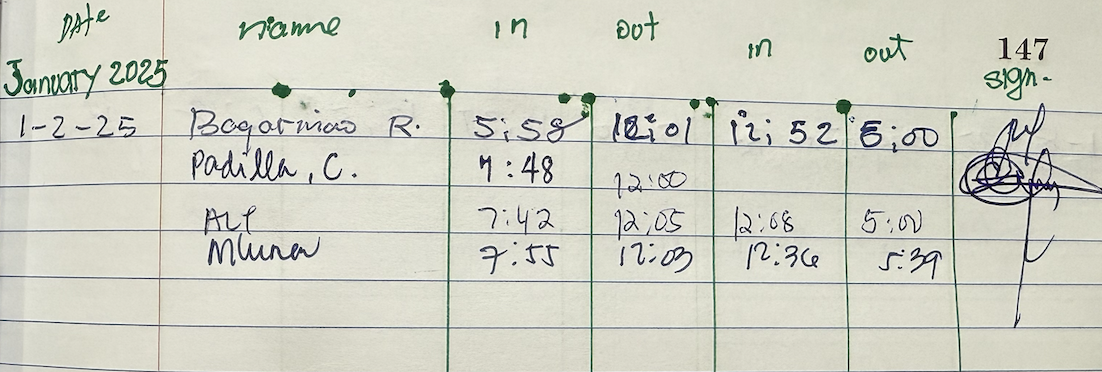 DATE name in out in out 147
January 2025 sign.
1-2-25 R. 5:58 12:01 12:52 5:00
Padilla, C. 7:48 12:00
ALF 7:42 12:05 12:08 5:00
MLuna 7:55 12:03 12:36 5:39